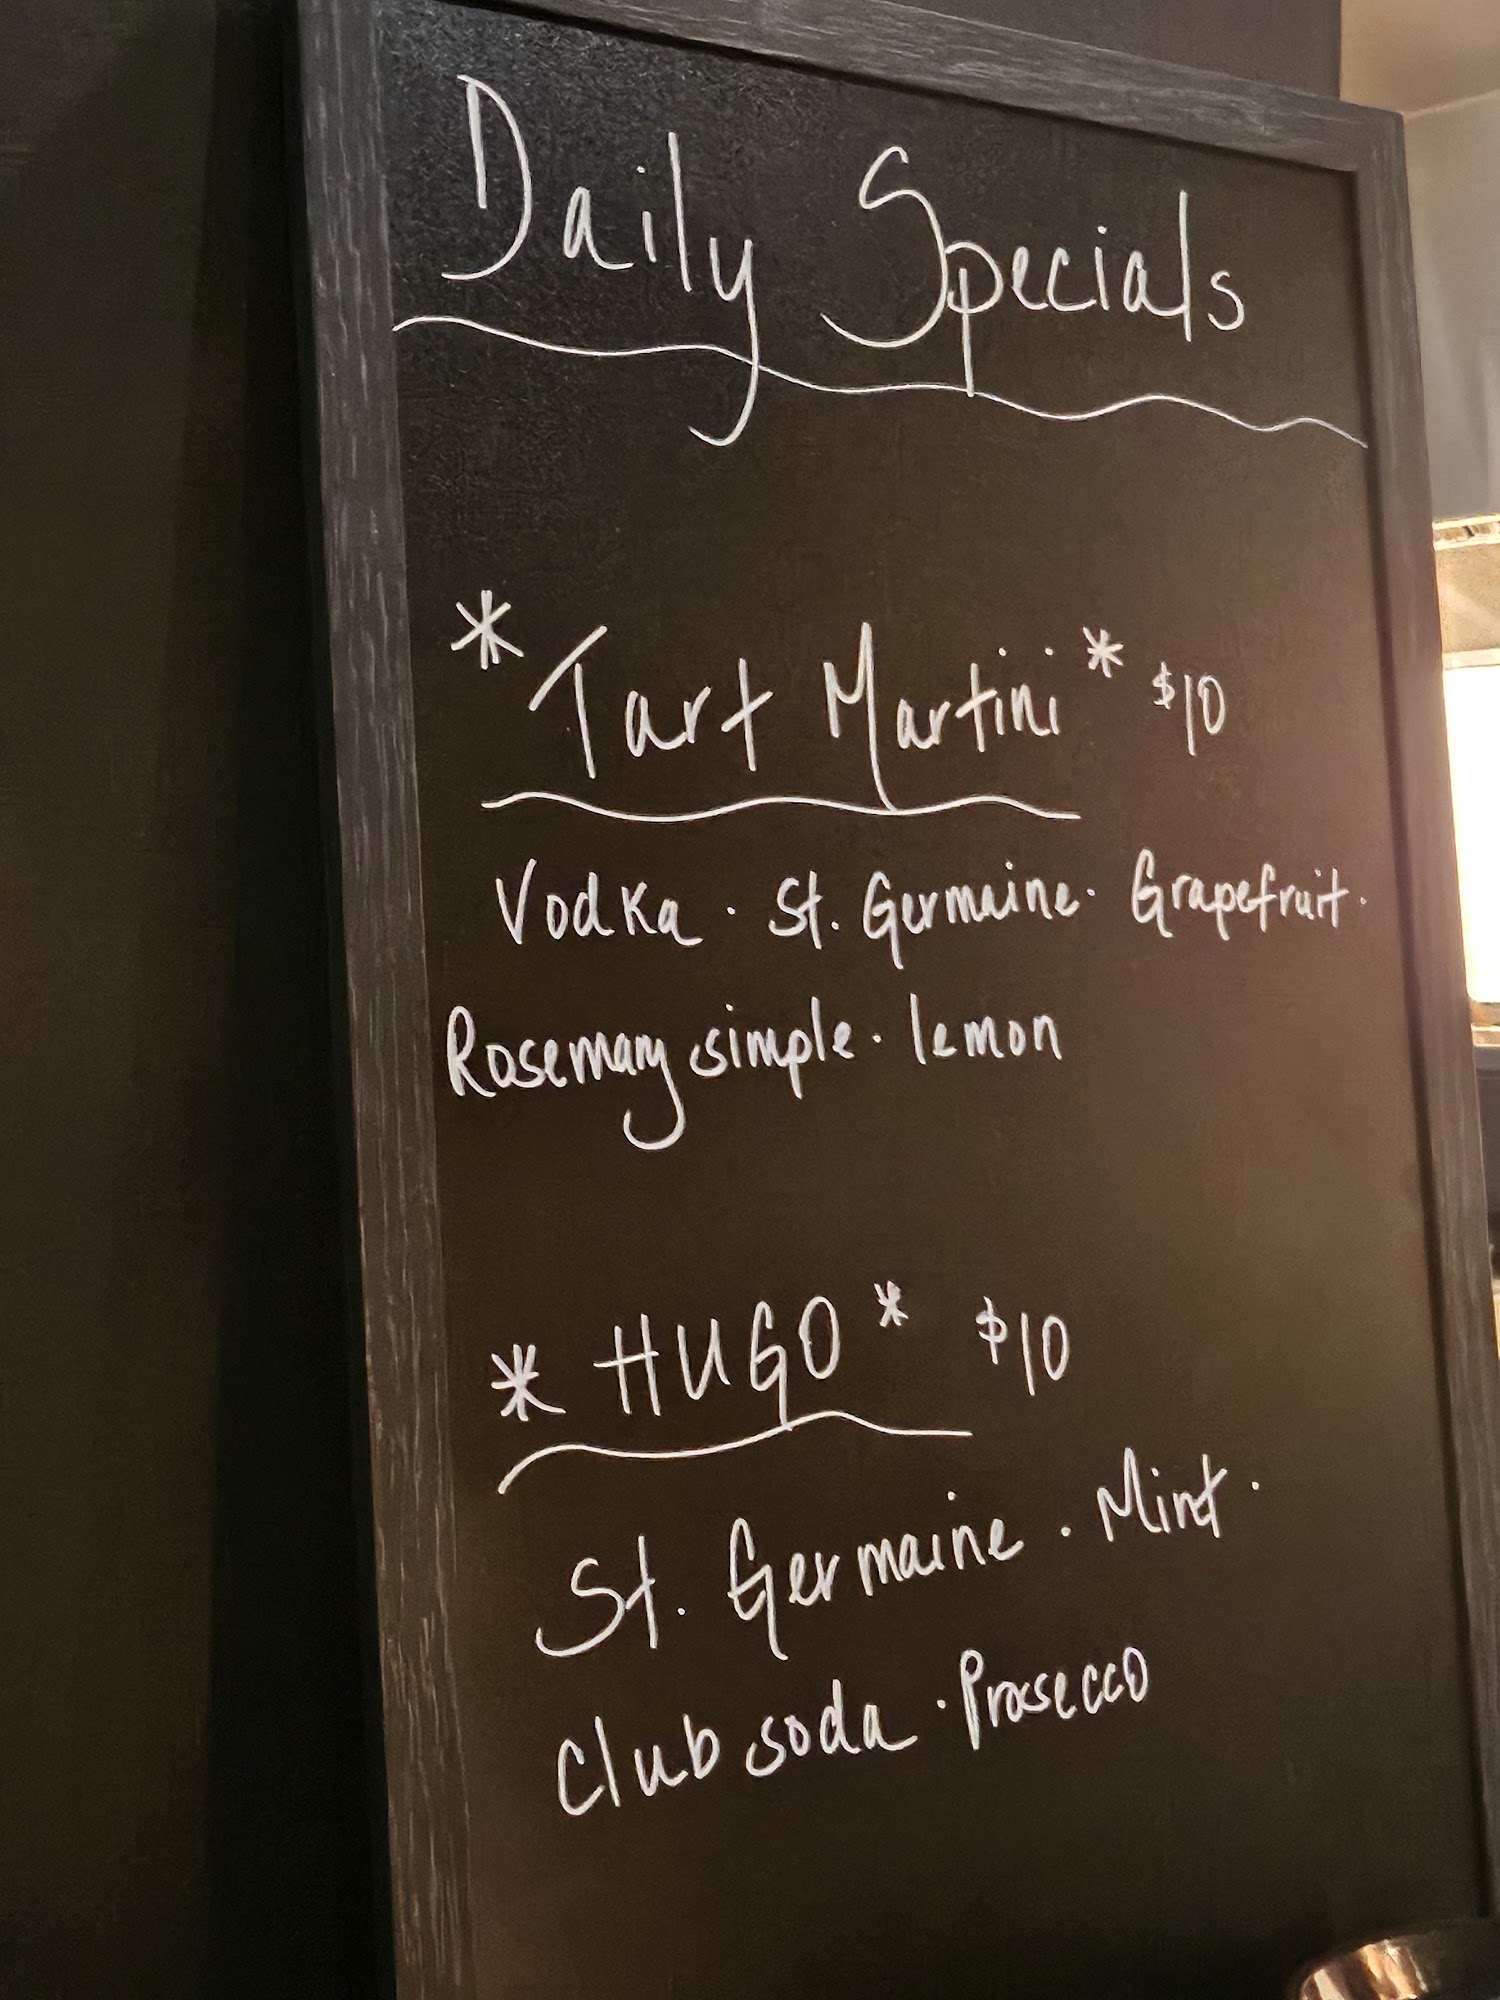 Daily Specials
* Tart Martini * $10
Vodka · St. Germaine · Grapefruit ·
Rosemary simple · lemon
* HUGO * $10
St. Germaine · Mint ·
Club soda · Prosecco